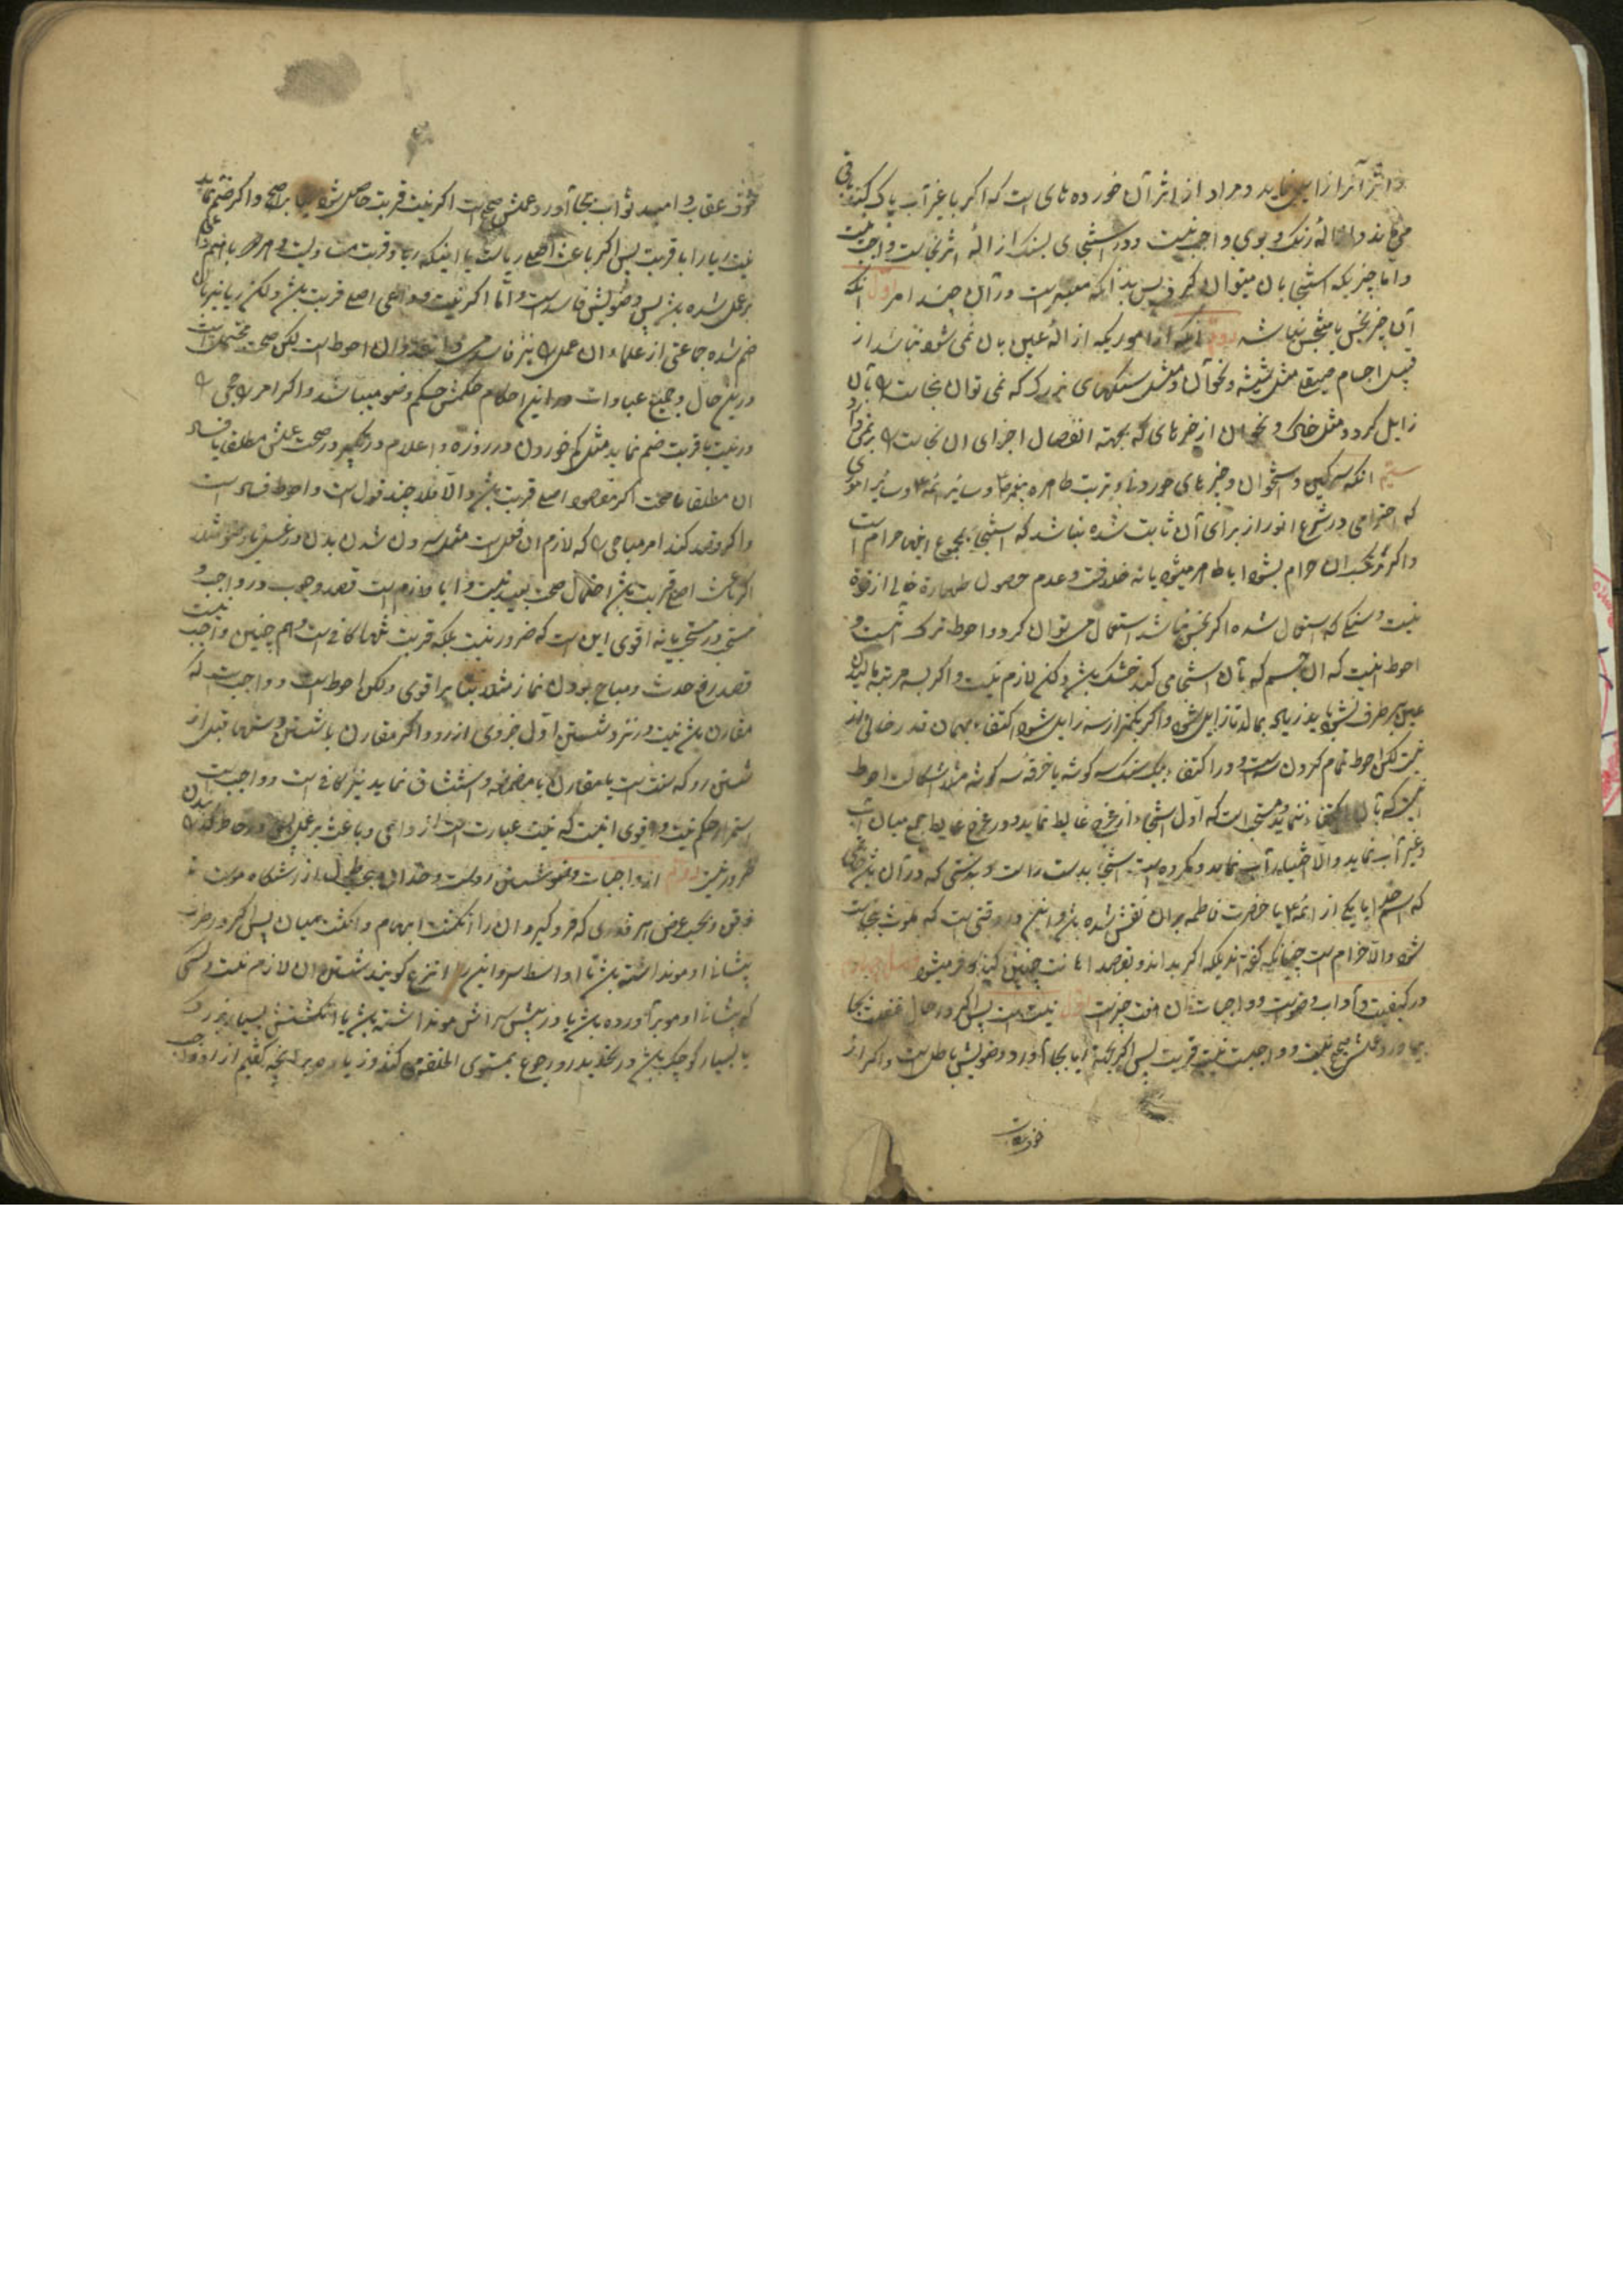 و اثر آنرا زایل نماید و مراد از اثر آن خورده های است که اکر با غیر آب پاک کنند باقی
می ماند و ازالهٔ رنک و بوی واجب نیست و در استنجای بسنک ازالهٔ اثر نجاست واجب نیست
و اما چیزیکه استنجا بان میتوان کرد پس بدانکه معتبر است در آن چند امر اول انکه
آن چیز نجس یا متنجس نباشد دویم انکه از اموریکه ازالهٔ عین بان نمی شود نباشد از
قبیل اجسام صیقلی مثل شیشه و نحو آن و مثل سنکهای بزرک که نمی توان نجاست را بآن
زایل کرد و مثل خاک و نحو ان از خیرهای که بجهته انفصال اجزای ان نجاست را بر نمی دارد
سیم انکه سرکین و استخوان و چیزهای خوردنی و تربت طاهره پیغمبر و سایر ائمه و سایر اموری
که احترامی در شرع انور از برای آن ثابت شده نباشد که استنجا بجموع اینها حرام است
و اکر مرتکب ان حرام بشود ایا طاهر میشود یا نه خلافست و عدم حصول طهارة خالی از قوة
نیست و سنکی که استعمال شده اکر نجس نباشد استعمال می توان کرد و احوط ترک انست و
احوط انیست که ان جسم که بآن استنجا می کند خشک باشد و لکن لازم نیست و اکر بسه مرتبه مالیدن
عین بر طرف نشود باید زیاده بمالد تا زایل شود و اکر بکمتر از سه زایل شود اکتفاء بهمان قدر خالی از
نیست لکن احوط تمام کردن سه است و در اکتفاء بیک سنک سه کوشه یا خرقه سه کوشه مثلا اشکالست احوط
انیست که بآن اکتفاء ننماید و مستحب است که اول استنجاء از مخرج غایط نماید و در مخرج غایط جمع میان آب
و غیر آب نماید و الا اختیار آب نماید و مکروه است استنجا بدست راست و بدستی که در آن باشد
که اسم خدا یا یکی از ائمه یا حضرت فاطمه بر ان نقش شده باشد و این در وقتی است که ملوث بنجاست
نشود و الا حرام است چنانکه کفته اند بلکه اکر بداند و بقصد اهانت چنین کند کافر میشود
در کیفیت و آداب وضو است و واجبات ان هفت چیز است اول نیت است پس اکر در حال غفلت بجا
بیاورد عملش صحیح نیست و واجبست نیت قربت پس اکر بجهته ریا بجا آورد وضویش باطل است و اکر از
خوف عقاب و امید ثواب بجا آورد عملش صحیح است اکر نیت قربت حاصل شود بنا بر اصح و اکر ضم نماید
نیت ریا را با قربت پس اکر باعث اصلی ریا است یا اینکه ریا و قربت مساویست و هر دو با هم داعی
بر عمل شده باشد پس وضویش فاسد است و امّا اکر نیت و داعی اصلی قربت باشد و لکن ریا نیز بان
ضم شده جماعتی از علماء ان عمل را نیز فاسد می دانند و ان احوط است لکن صحت محتمل است
در این حال و جمیع عبادات در این احکام حکمش حکم وضو میباشد و اکر امر راجحی را
در نیت با قربت ضم نماید مثل کم خوردن در روزه و اعلام در تکبیر در صحت عملش مطلقا یا فساد
ان مطلقا یا صحت اکر مقصود اصلی قربت باشد و الا فلا چند قول است و احوط فساد است
و اکر قصد کند امر مباحی را که لازم ان فعل است مثل سرد شدن بدن در غسل یا وضو مثلا
اکر باعث اصلی قربت باشد احتمال صحت بعید نیست و ایا لازم است قصد وجوب در واجب و
مستحب در مستحب یا نه اقوی این است که ضرور نیست بلکه قربت تنها کافی است و هم چنین واجب نیست
قصد رفع حدث و مباح بودن نماز مثلا بنا بر اقوی و لکن احوط است و واجبست که
مقارن باشد نیت در نزد شستن اول جزوی از رو و اکر مقارن با شستن دستها قبل از
شستن رو که سنت است یا مقارن با مضمضه و استنشاق نماید نیز کافی است و واجبست
استمرار حکم نیت و اقوی انیست که نیت عبارت است از داعی و باعث بر عمل و در خاطر کذرانیدن
ضرور نیست دویم از واجبات وضو شستن رو است و حد ان بحسب طول از رستنکاه مو است تا
ذقن و بحسب عرض هر قدری که فرو کیرد ان را انکشت ابهام و انکشت میان پس اکر در طرف
پیشانی او مو نداشته باشد تا اواسط سر و این را انزع کویند شستن ان لازم نیست و کسی
که پیشانی او مو برآورده باشد یا در پیش سرش مو نداشته باشد یا انکشتش بسیار بزرک
یا بسیار کوچک باشد در تحدید رو رجوع بمستوی الخلقه می کند و زیاده بر آنچه کفتیم از رو واجب